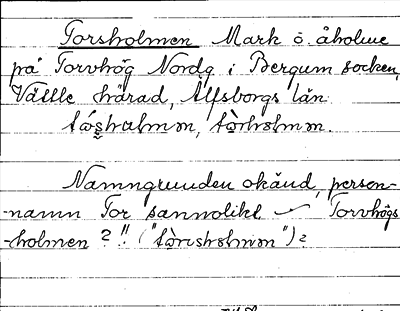 Torsholmen Mark ö. åholme
på Torvhög Nordg i Bergum socken,
Vättle härad, Älfsborgs län
Namngrunden okänd, person-
-namn Tor sannolikt Torvhögs
-holmen?!!